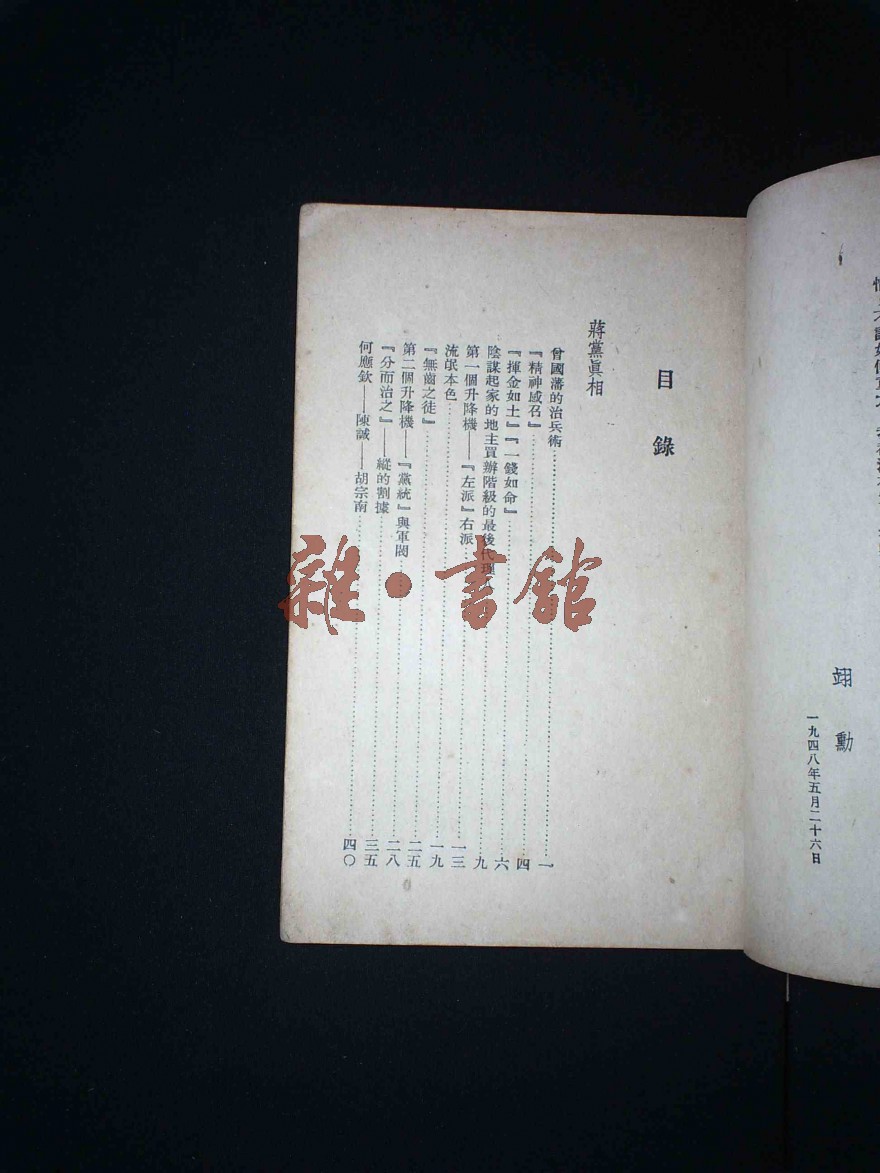 翊勳
一九四八年五月二十六日
目錄
蔣黨眞相
曾國藩的治兵術…………一
『精神感召』…………四
『揮金如土』『一錢如命』…………六
陰謀起家的地主買辦階級的最後代理…………九
第一個升降機——『左派』右派…………一三
流氓本色…………一九
『無齒之徒』…………二五
第二個升降機——『黨統』與軍閥…………二八
『分而治之』——縱的割據…………三五
何應欽——陳誠——胡宗南…………四〇
雜·書館